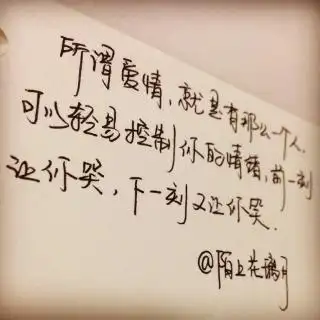 所谓爱情,就是有那么一个人,
可以轻易控制你的情绪,前一刻
让你哭,下一刻又让你
@陌上花璃月